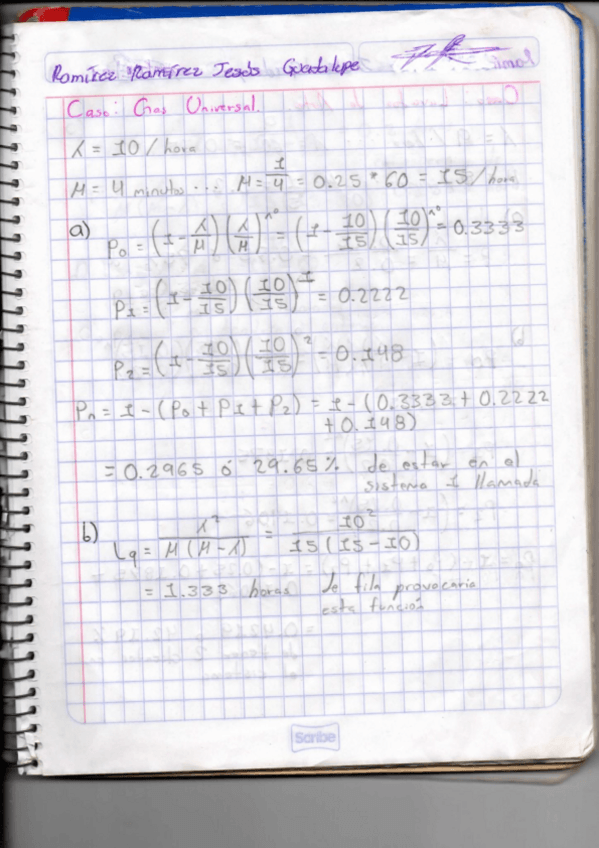 Ramírez Ramírez Jesús Guadalupe
Caso: Gas Universal.
λ = 10 / hora
M = 4 minutos ... M = 1/4 = 0.25 * 60 = 15 / hora
a) P0 = (1 - λ/M) (λ/M)^n° = (1 - 10/15) (10/15)^n° = 0.3333
P1 = (1 - 10/15) (10/15)^1 = 0.2222
P2 = (1 - 10/15) (10/15)^2 = 0.148
Pn = 1 - (P0 + P1 + P2) = 1 - (0.3333 + 0.2222
+ 0.148)
= 0.2965 ó 29.65% de estar en el
sistema 1 llamada
b) Lq = λ²/M(M-λ) = 10²/15(15-10)
= 1.333 horas de fila provocaria
esta función
Scribe